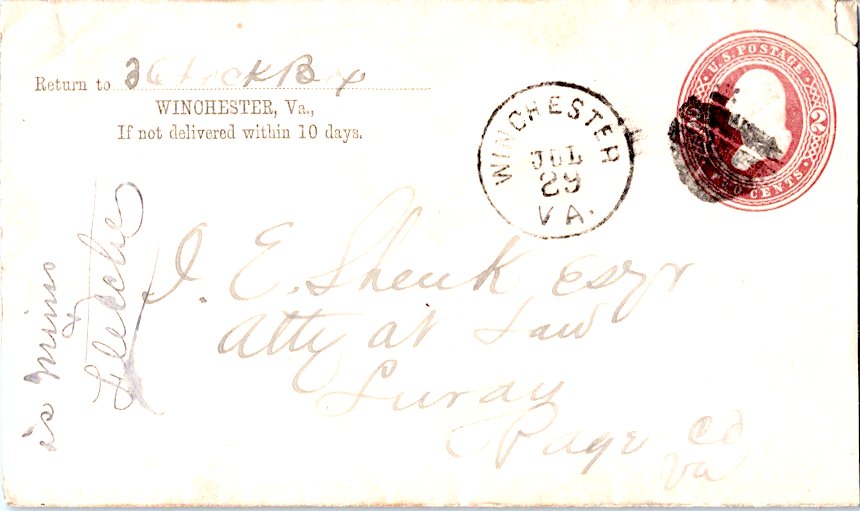 Return to 36 Lock Box
WINCHESTER, Va.,
If not delivered within 10 days.
WINCHESTER
JUL
29
VA.
U.S. POSTAGE
2
TWO CENTS
E. Shenk Esqr
Atty at Law
Luray
Page Co
Va